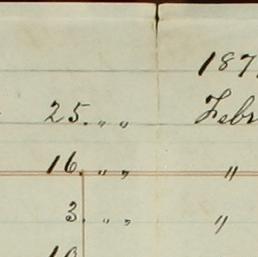 187
25. " " Febr
16. " " "
3. " " "
10